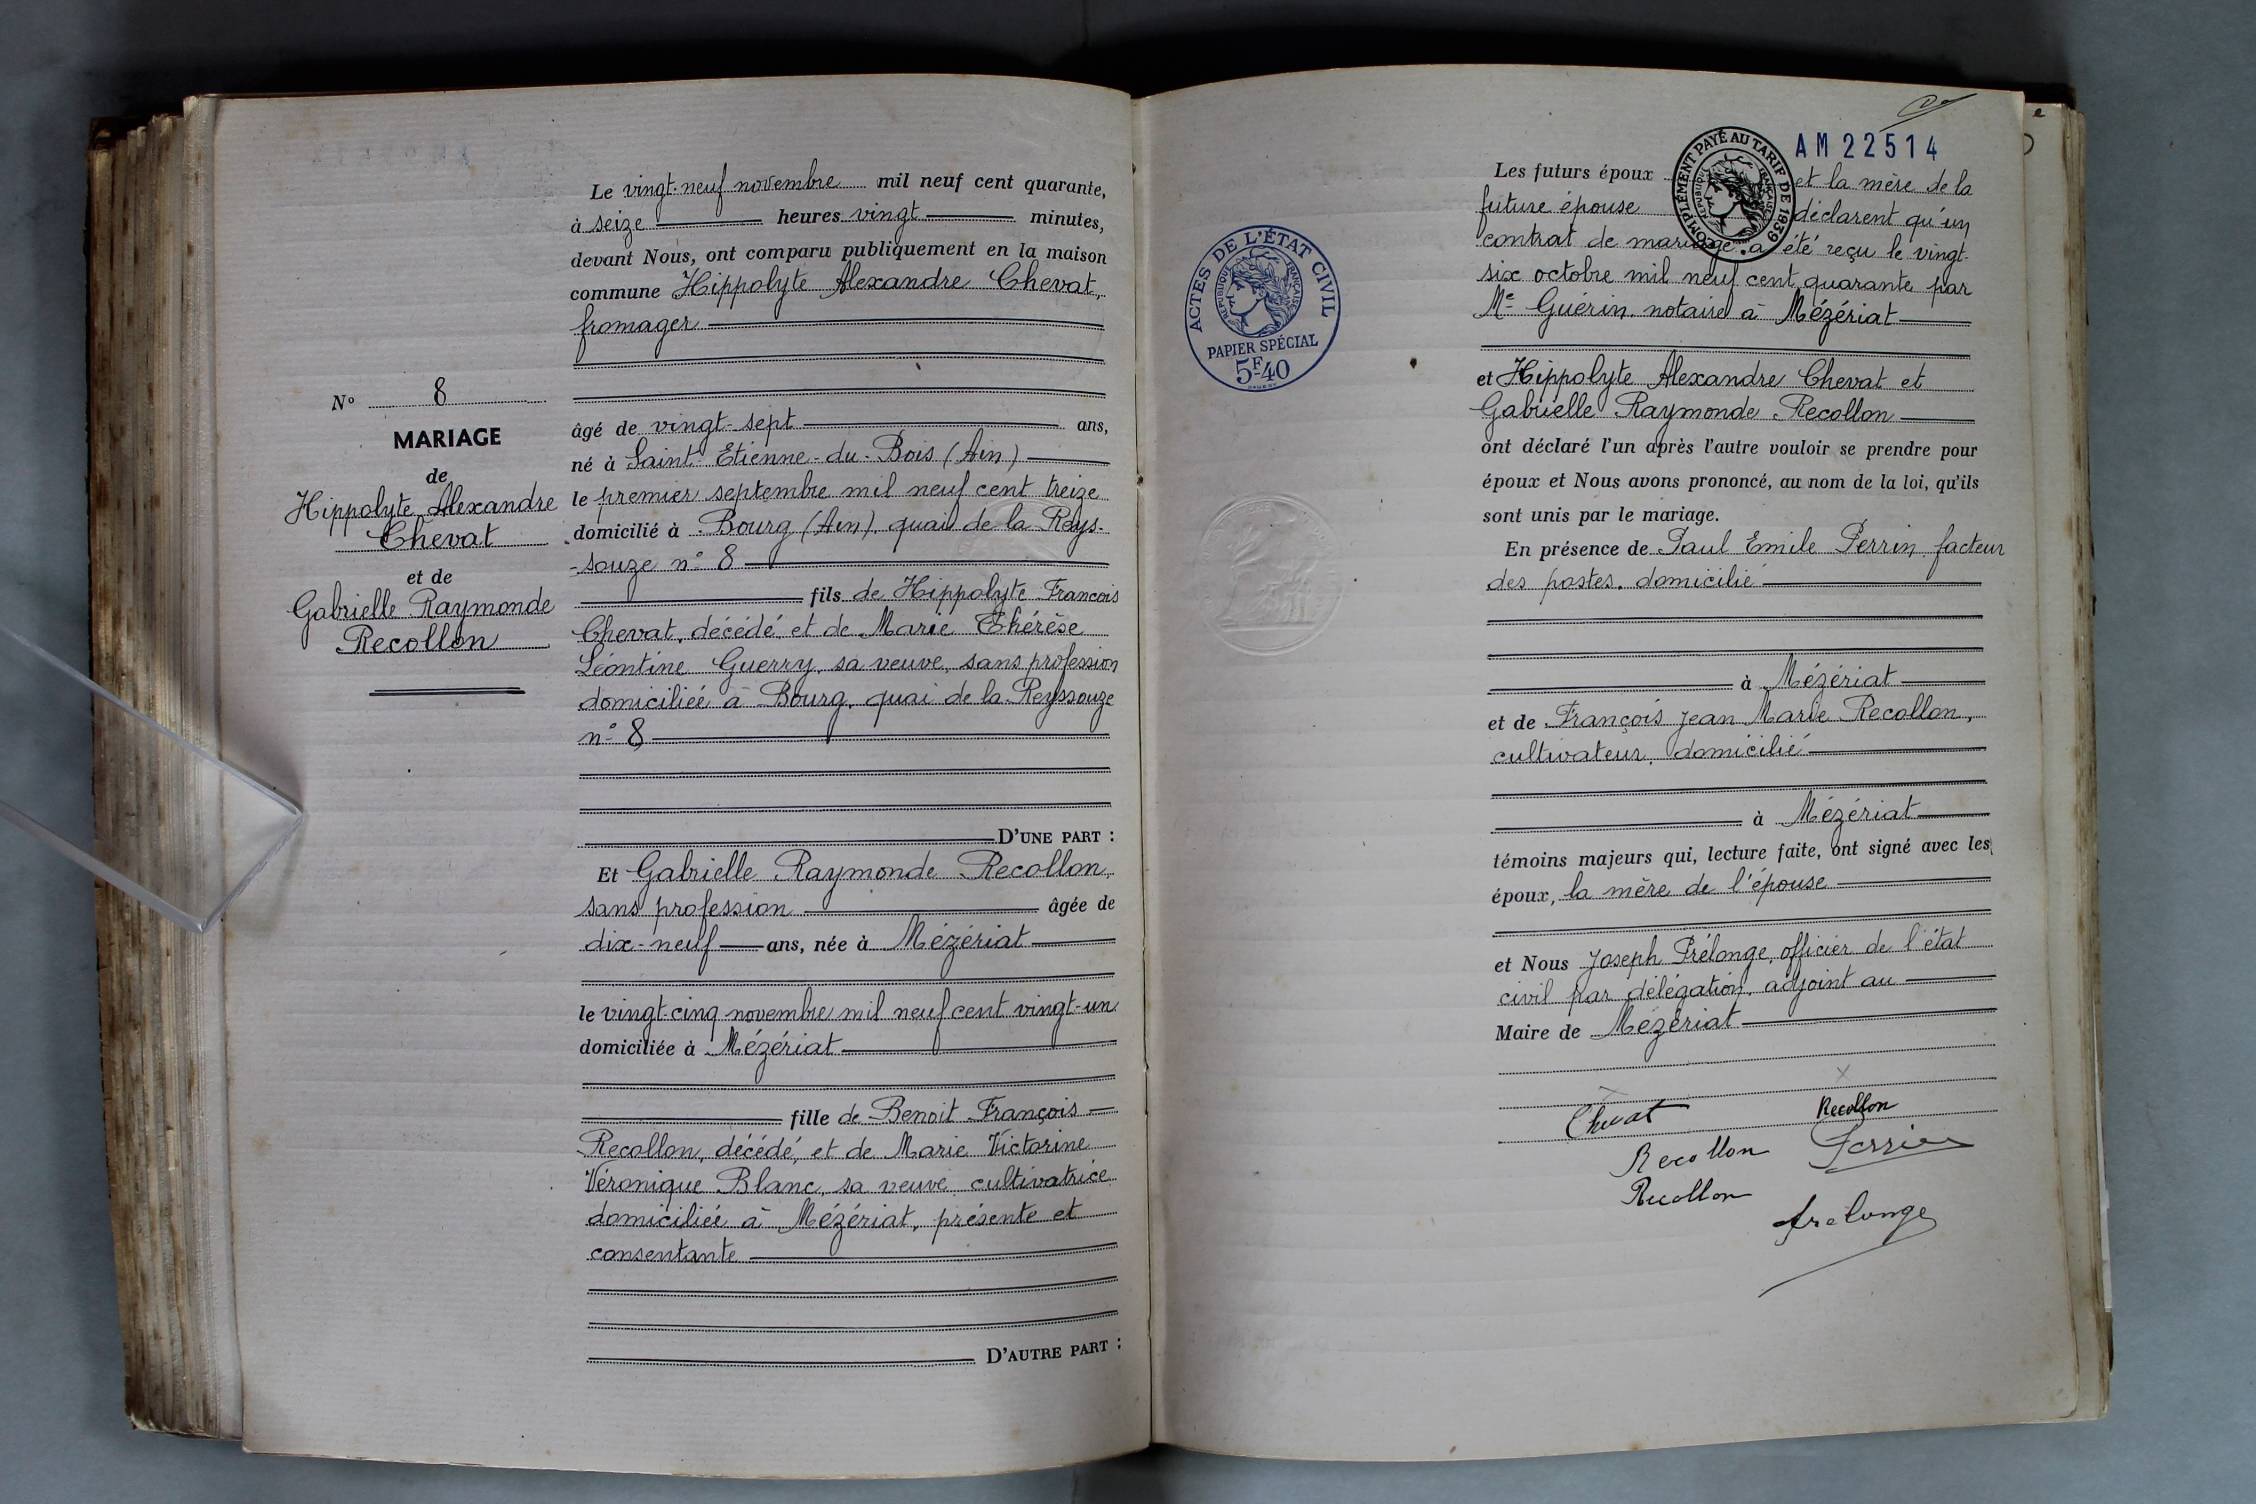 Le vingt-neuf novembre mil neuf cent quarante,
à seize heures vingt minutes,
devant Nous, ont comparu publiquement en la maison
commune Hippolyte Alexandre Chevat,
fromager
âgé de vingt-sept ans,
né à Saint-Etienne-du-Bois (Ain)
le premier septembre mil neuf cent treize
domicilié à Bourg (Ain), quai de la Reys-
-souze n° 8
fils de Hippolyte Francois
Chevat, décédé et de Marie Thérèse
Léontine Guerry, sa veuve, sans profession
domiciliée à Bourg, quai de la Reyssouze
n° 8
D'UNE PART :
Et Gabrielle Raymonde Recollon,
sans profession âgée de
dix-neuf ans, née à Mézériat
le vingt-cinq novembre mil neuf cent vingt-un
domiciliée à Mézériat
fille de Benoit François
Recollon, décédé, et de Marie Victorine
Véronique Blanc, sa veuve, cultivatrice
domiciliée à Mézériat, présente et
consentante
D'AUTRE PART :
N° 8
MARIAGE
de
Hippolyte Alexandre
Chevat
et de
Gabrielle Raymonde
Recollon
ACTES DE L'ÉTAT CIVIL
RÉPUBLIQUE FRANÇAISE
PAPIER SPÉCIAL
5F40
COMPLÉMENT PAYÉ AU TARIF DE 1939
RÉPUBLIQUE FRANÇAISE
AM 22514
Les futurs époux et la mère de la
future épouse déclarent qu'un
contrat de mariage a été reçu le vingt-
six octobre mil neuf cent quarante par
Me Guerin, notaire à Mézériat
et Hippolyte Alexandre Chevat et
Gabrielle Raymonde Recollon
ont déclaré l'un après l'autre vouloir se prendre pour
époux et Nous avons prononcé, au nom de la loi, qu'ils
sont unis par le mariage.
En présence de Paul Emile Perrin, facteur
des postes, domicilié
à Mézériat
et de François Jean Marie Recollon,
cultivateur, domicilié
à Mézériat
témoins majeurs qui, lecture faite, ont signé avec les
époux, la mère de l'épouse
et Nous Joseph Prélonge, officier de l'état
civil par délégation, adjoint au
Maire de Mézériat
Chevat Recollon
Recollon Perrin
Recollon
Prelonge